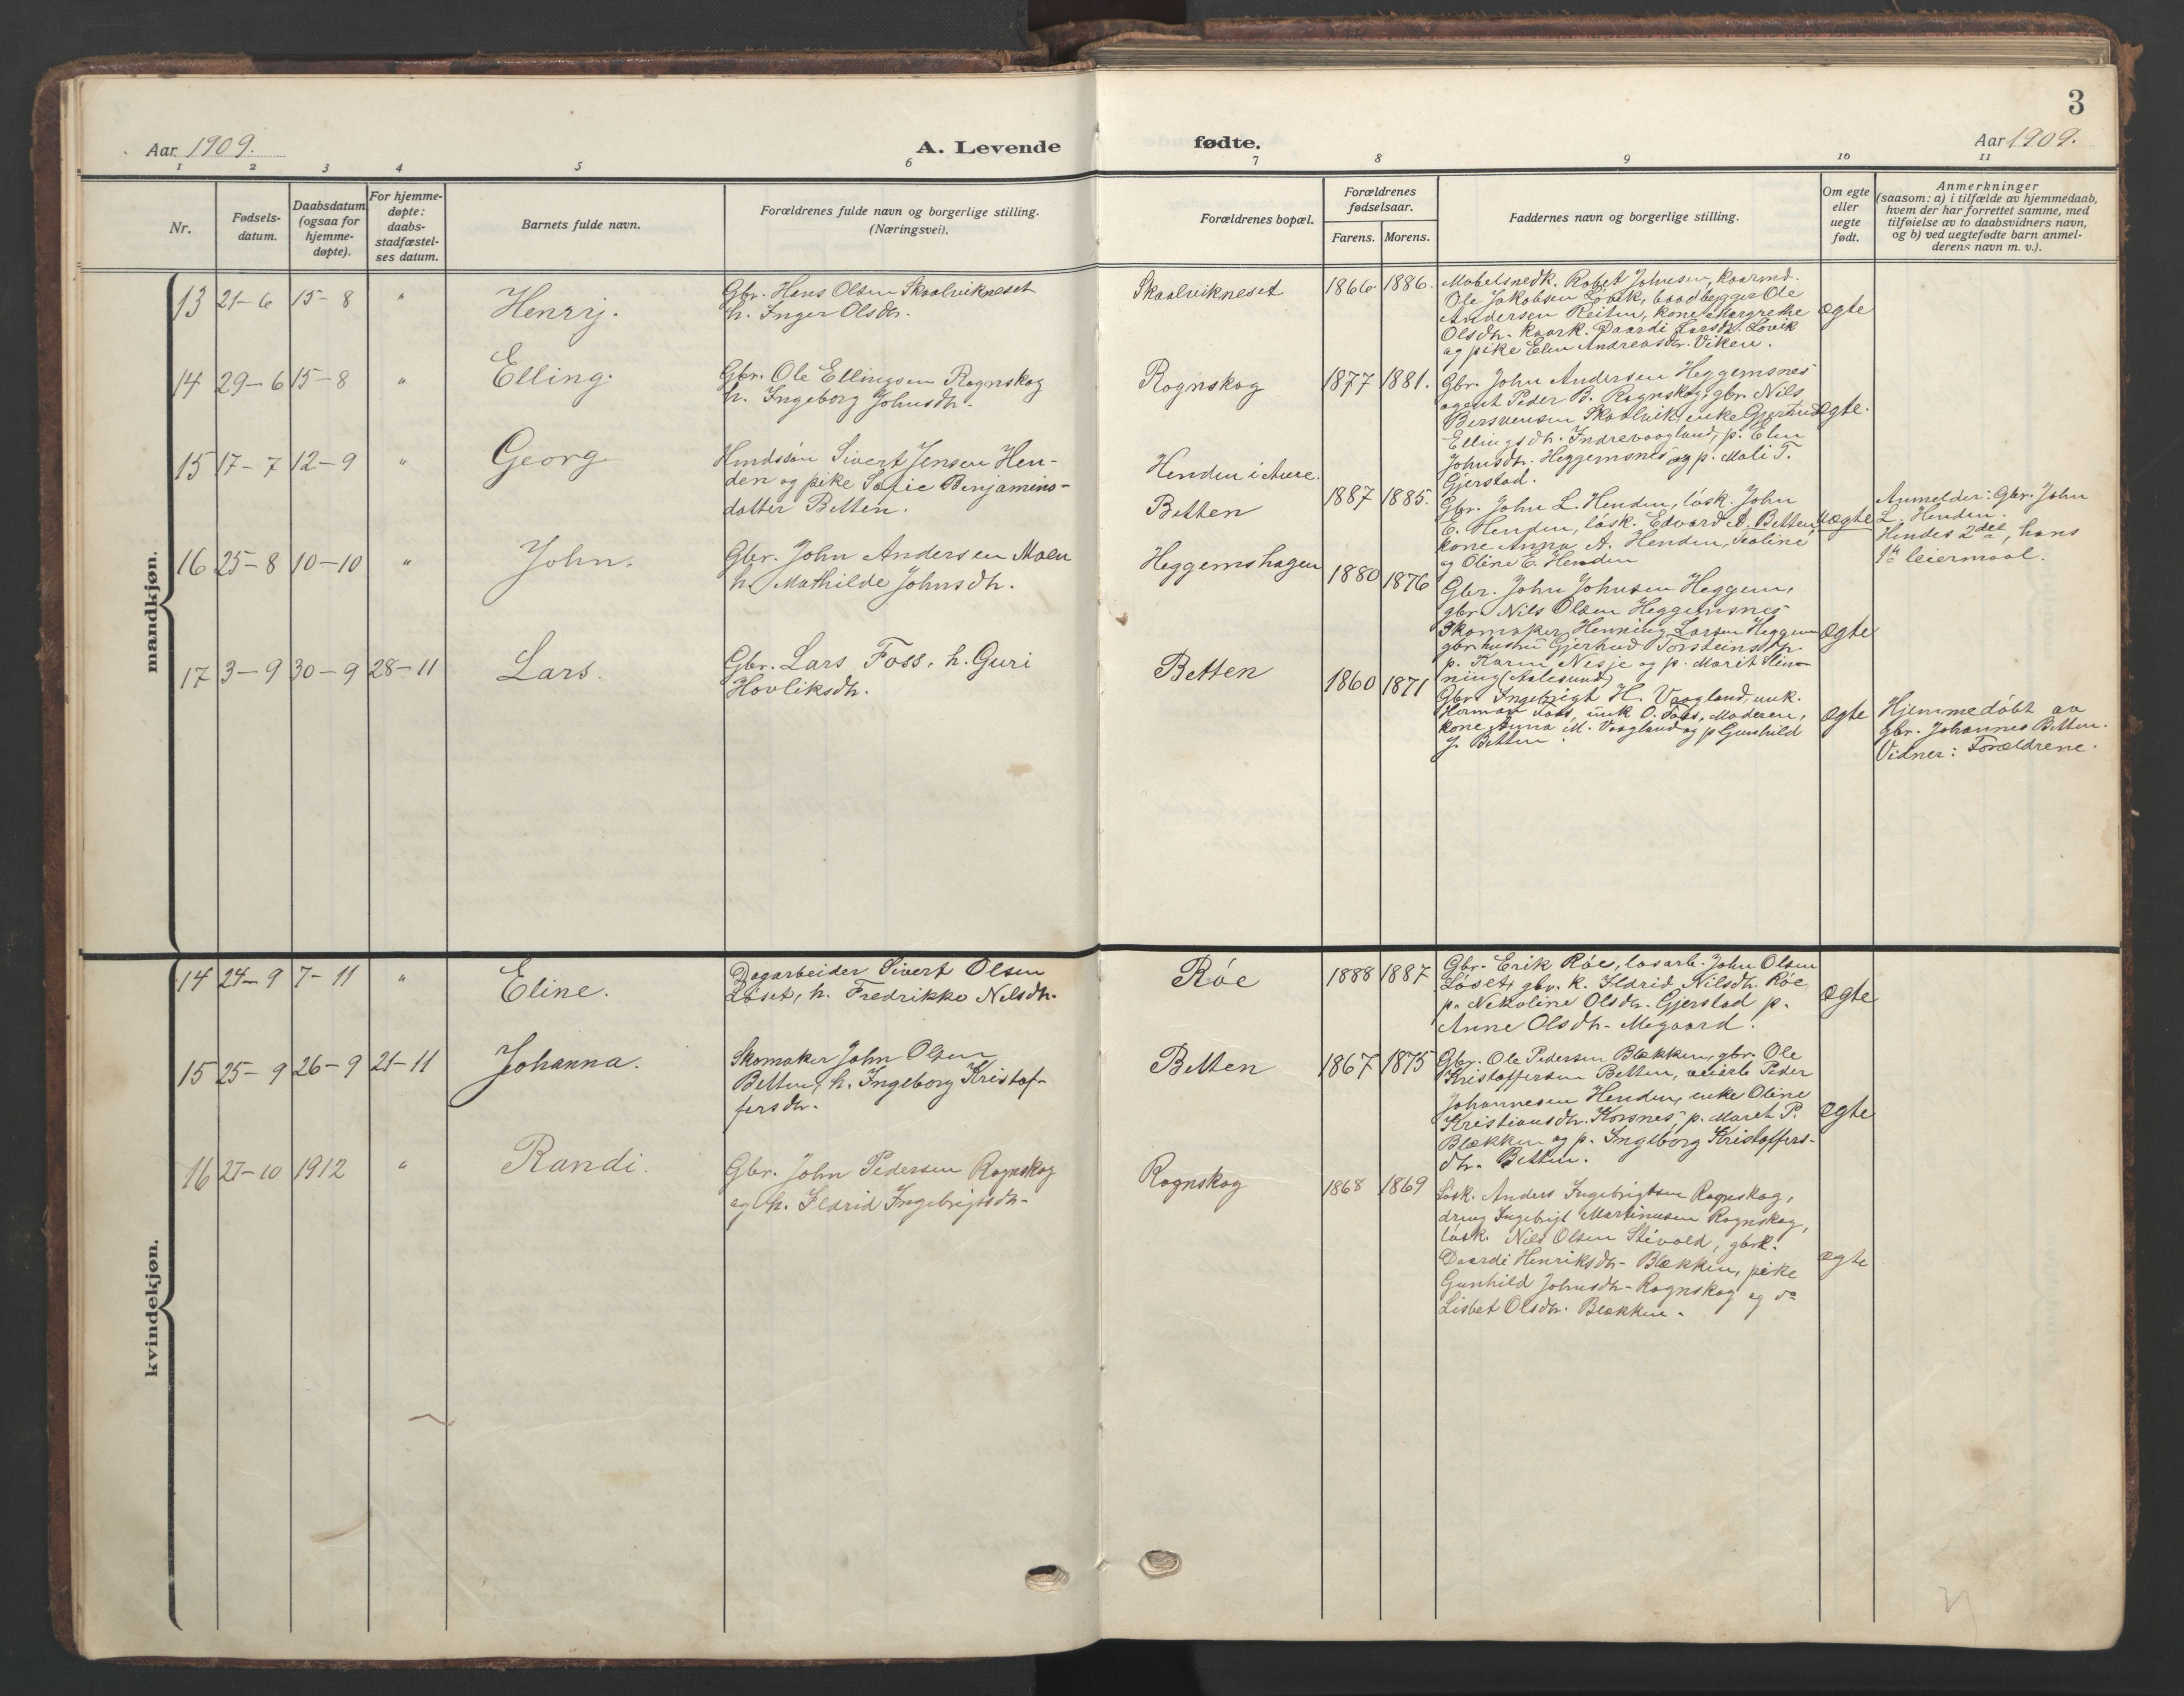 3
Aar 1909.
A. Levende
fødte.
Aar 1909.
1 2 3 4 5 6 7 8 9 10 11
Nr.
Fødsels-
datum.
Daabsdatum
(ogsaa for
hjemme-
døpte).
For hjemme-
døpte:
daabs-
stadfæstel-
ses datum.
Barnets fulde navn.
Forældrenes fulde navn og borgerlige stilling.
(Næringsvei).
Forældrenes bopæl.
Forældrenes
fødselsaar.
Farens. Morens.
Faddernes navn og borgerlige stilling.
Om egte
eller
uegte
født.
Anmerkninger
(saasom: a) i tilfælde av hjemmedaab,
hvem der har forrettet samme, med
tilføielse av to daabsvidners navn,
og b) ved uegtefødte barn anmel-
derens navn m. v.).
mandkjøn.
13 21-6 15-8 " Henrij.
Gbr. Hans Olsen Skaalvikneset
h. Inger Olsdtr.
Skaalvikneset 1866. 1886.
Møbelsnedk. Robet Johnsen, kaarmd.
Ole Jakobsen Løvik, baadbygger Ole
Andersen Reiten, kone Margrethe
Olsdtr. kaark. Daardi Larsdtr. Løvik
og pike Elen Andreasdtr. Viken.
Ægte
14 29-6 15-8 " Elling.
Gbr. Ole Ellingsen Rognskog
h. Ingeborg Johnsdtr.
Rognskog 1877 1881.
Gbr. John Andersen Heggemsnes
agent Peder B. Rognskog, gbr. Nils
Bersvensen Skaalvik, enke Gjertrud
Ellingsdtr. Indrevaagland, p. Elen
Johnsdtr. Heggemsnes og p. Mali T.
Gjerstad.
Ægte.
15 17-7 12-9 " Georg
Sivert Jensen Hen-
den og pike Sofie Benjamins-
datter Betten.
Henden i Aure.
Betten
1887 1885.
Gbr. John L. Henden, løsk. John
E. Henden, løsk. Edvard A. Betten,
kone Anna A. Henden,
og Oline E. Henden
Uægte
Anmelder: Gbr. John
L. Henden.
Hendes 2det, hans
1te leiermaal.
16 25-8 10-10 " John.
Gbr. John Andersen Moen
h. Mathilde Johnsdtr.
Heggemshagen 1880 1876
Gbr. John Johnsen Heggem,
gbr. Nils Olsen Heggemsnes
Skomaker Henning Larsen Heggem
gbr. hustru Gjertrud Torsteinsdtr.
p. Karen Nesje og p. Marit Hen-
ning (Aalesund)
Ægte
17 3-9 30-9 28-11 Lars.
Gbr. Lars Foss, h. Guri
Havliksdtr.
Betten 1860 1871
Gbr. Ingebrigt H. Vaagland, unk.
Herman Foss, unk O. Foss, Moderen,
kone Anna M. Vaagland og p Gunhild
J. Betten.
Ægte
Hjemmedøbt av
gbr. Johannes Betten.
Vidner: Forældrene.
kvindekjøn.
14 24-9 7-11 " Eline.
Dagarbeider Sivert Olsen
Løset, h. Fredrikke Nilsdtr.
Røe 1888 1887
Gbr. Erik Røe, løsarb. John Olsen
Løset, gbr. k. Ildrid Nilsdtr. Røe
p. Nekoline Olsdtr. Gjerstad p.
Anne Olsdtr. Megaard.
Ægte
15 25-9 26-9 21-11 Johanna.
Skomaker John Olsen
Betten, h. Ingeborg Kristof-
fersdtr.
Betten 1867 1875
Gbr. Ole Pedersen Blekken, gbr. Ole
Kristoffersen Betten, veiarb Peder
Johannesen Henden, enke Oline
Kristiansdtr. Korsnes, p. Maret P.
Blekken og p. Ingeborg Kristoffers-
dtr. Betten.
Ægte
16 27-10 1912 " Randi.
Gbr. John Pedersen Rognskog
og h. Ildrid Ingebrigtsdtr.
Rognskog 1868 1869
Løsk. Anders Ingebrigtsen Rognskog,
dreng Ingebrigt Martinusen Rognskog,
løsk. Nils Olsen Stivold, gbrk.
Daardi Henriksdtr. Blekken, pike
Gunhild Johnsdtr. Rognskog og do
Lisbet Olsdtr. Blekken.
ægte